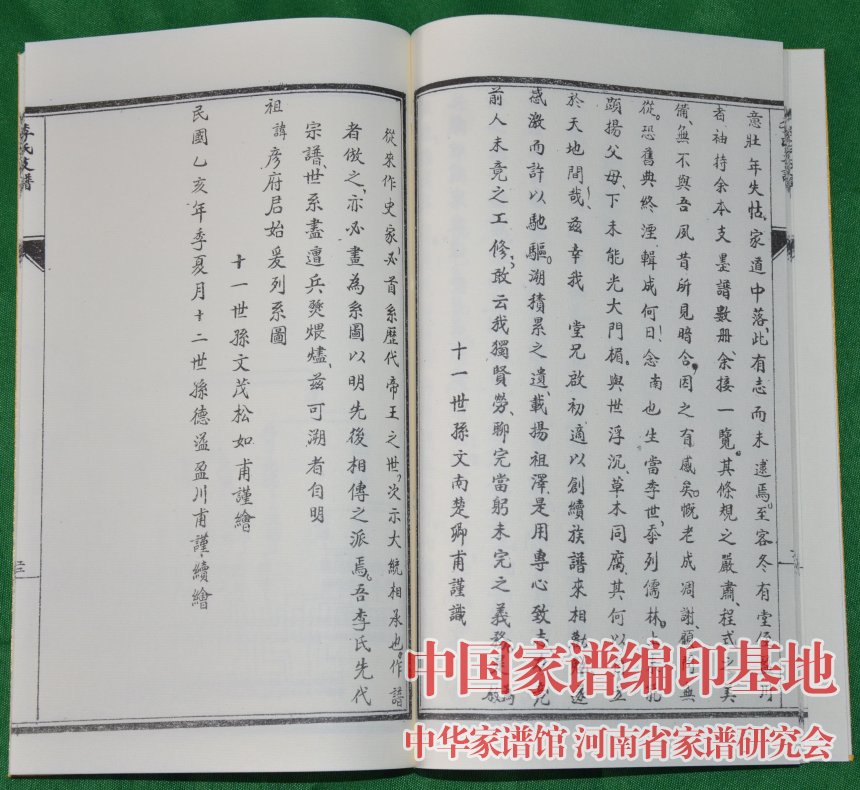 意壯年失怙家道中落此有志而未逮焉至客冬有堂
者袖持余本支墨譜數册余接一覽其條規之嚴肅程式之美
備無不與吾夙昔所見暗合因之有感矣慨老成凋謝無
從恐舊典終湮輯成何日念南也生當季世忝列儒林上
顯揚父母下未能光大門楣與世浮沉草木同腐其何以立
於天地間哉茲幸我堂兄啟初適以創續族譜來相
感激而許以馳驅溯積累之遺載揚祖澤是用專心致志
前人未竟之工修敢云我獨賢勞聊完當躬未完之義務
十一世孫文南楚卿甫謹識
從來作史家必首系歷代帝王之世次示大統相承也作譜
者倣之亦必畫為系圖以明先後相傳之派焉吾李氏先代
宗譜世系盡遭兵燹煨燼茲可溯者自明
祖諱彥府君始爰列系圖
十一世孫文茂松如甫謹繪
民國乙亥年季夏月十二世孫德溢盈川甫謹續繪
李氏支譜
中国家谱编印基地
中华家谱馆 河南省家谱研究会